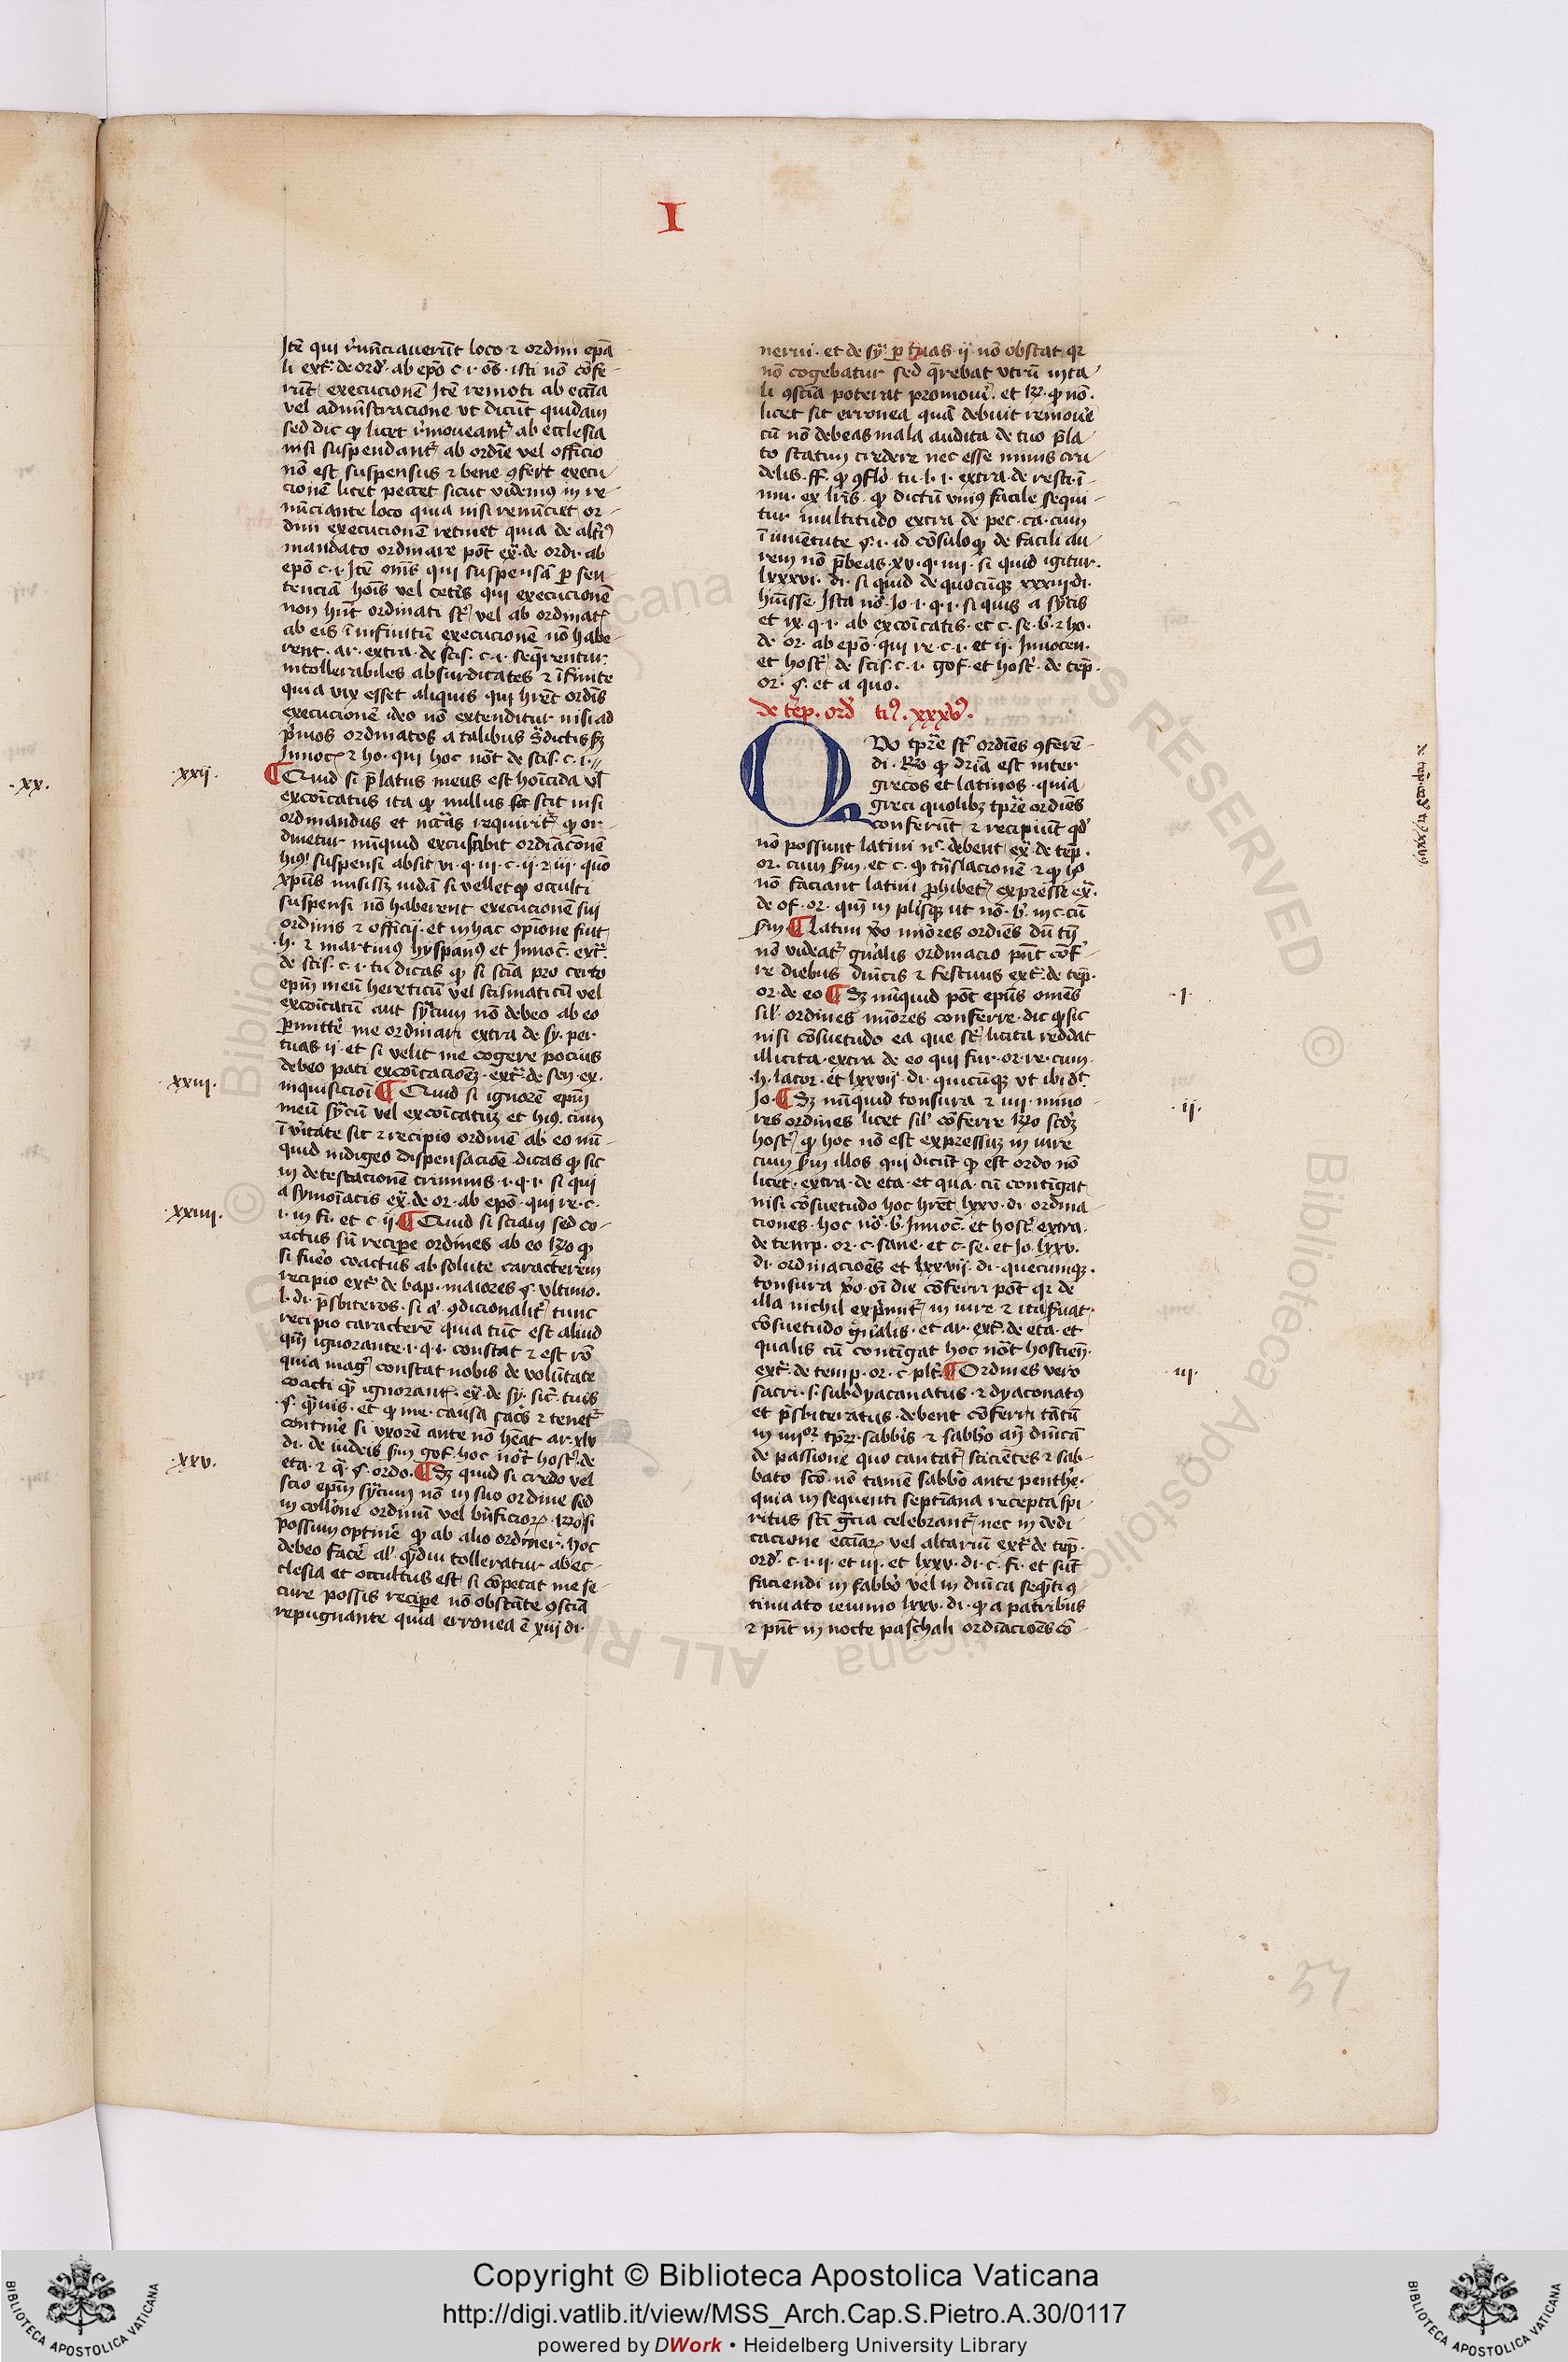 I
Itē qui r̄nūciauerūt loco ⁊ ordini epā
li ext̄. de ord̄. ab epō c. i. os̄. isti nō cōfe-
rūt execucionē Itē remoti ab eccīa
vel adminstracione vt dicūt quidam
sed dic ꝙ licet r̄moueant᷑ ab ecclesia
nisi suspendant᷑ ab ordīe vel officio
nō est suspensus ⁊ bene ꝯfert execu-
cionē licet peccet sicut videmꝰ in re-
nūciante loco quia nisi renūciet or-
dini execucionē retinet quia de altiꝰ
mandato ordinare pōt ex̄. de ordi. ab
epō c. i. Itē om̄s qui suspensā ꝑ sen-
tenciā hoīs vel cetis qui execucionē
non hn̄t ordinati st̄ vel ab ordinat᷑
ab eis īinfinitū execucionē nō habe-
rent. ar. extra. de scis. c. i. seq̄rentur
intollerabiles absurditates ⁊ īfinite
quia vix esset aliquis qui hr̄et ordīs
execucionē ideo nō extenditur nisi ad
p̄mos ordinatos a talibus s̄dictis sꝫ
Innoc᷑ ⁊ ho. qui hoc nōt de scis. c. i.
·xxij· ¶ Quid si p̄latus meus est hoīcida vl̄
excoīcatus ita ꝙ nullus scit nisi
ordinandus et nc̄c̄as requirit᷑ ꝙ or-
dinetur nūnquid excusabit ordīacōnē
hiꝰ suspensi absit vi. q. iii. c. ii. ⁊ iii. quō
xp̄us misissꝫ iudā si vellet ꝙ occulti
suspensi nō haberent execucionē sui
ordinis ⁊ officij. et in hac opīone fuit
·h. ⁊ martinꝰ hyspanꝰ et Innoc̄. ext̄.
de scis. c. i. tu dicas ꝙ si sciā pro certo
epm̄ meū hereticū vel scismaticū vel
excoīcatū aut sy̅cum nō debeo ab eo
ꝑmittē me ordinari extra de sy. per
tuas ii. et si velit me cogere pocius
debeo pati excoīcacioēꝫ. ext̄. de sen. ex.
·xxiii· inquisicioī ¶ Quid si ignorē epm̄
meū sy̅cū vel excoīcatuꝫ et hiꝰ. cum
īvītate sit ⁊ recipio ordinē ab eo nū-
quid indigeo dispensacioē dicas ꝙ sic
in detestacionē criminis. i. q. i. si qui
a symoīacis ex̄. de or. ab epō. qui re. c.
·xxiiii· i. in fi. et c. ij. ¶ Quid si sciam sed co-
actus sū recipe ordines ab eo ꝙ
si fuēo coactus absolute caracterem
recipio ext̄. de bap. maiores §. vltimo.
l. di. p̄sbiteros. si ꝯdicionalit᷑ tunc
recipio caracterē quia tūc est aliud
qm̄ ignorante. i. q. i. constat ⁊ est rō
quia mag̅ constat nobis de volūtate
coacti qm̄ ignorant᷑. ex̄. de sy. sic̄. tuis
·§. qm̄uis. et ꝙ me. causa sac̄s ⁊ tenet᷑
contine si vxorē ante nō hēat ar. xlv
di. de iudeis sm̄ gof. hoc nōt host᷑. de
·xxv· eta. ⁊ q̄. §. ordo. ¶ Sꝫ quid si credo vel
scio epm̄ sy̅cum nō in suo ordine sed
in collōne ordinū vel bn̄ficioꝝ. si
possum optinē ꝙ ab alio ordiner. hoc
debeo facē al̄. qm̄diu tolleratur ab ec-
clesia et occultus est si cōpetat me se-
cure possis recipe nō obstāte ꝯsciā
repugnante quia erronea ē xiij di.
nerui. et de sy. ꝑ tuas. ij. nō obstat qr
nō cogebatur sed q̄rebat vtrū in ta-
li ꝯsciā poterat promoui. et ꝙ nō.
licet sit erronea quā debuit remoue
cū nō debeas mala audita de tuo p̄la-
to statim credere nec esse nimis cru-
delis. ff. ꝙ ꝯflo. tu. l. i. extra. de resti. ī
nu. ex lr̄is. ꝙ dictū vniꝰ facile sequi-
tur multitudo extra de pec. ca. cum
ī iuuētute §. i. id cōsulo ꝙ de facili au-
rem nō p̄beas. xv. q. iiii. si quid igitur.
lxxxvi. di. si quid de quocūqꝫ xxxiii di.
huīsse. Ista nō. Io. i. q. i. si quis a sy̅cis
et ix. q. i. ab excoīcatis. et c. se. b. ⁊ ho.
de. or. ab epō. qui re. c. i. et ii. Innocen.
et host᷑. de scis. c. i. gof. et host᷑. de tēp.
or. §. et a quo.
de tēp. ord̄ tiꝰ. xxxvꝰ.
QVo tp̄re st᷑ ordīes ꝯferē-
di. Rō ꝙ dr̄iā est inter
grecos et latinos. quia
greci quolibꝫ tp̄re ordīes
conferūt ⁊ recipiūt qd̄
nō possunt latini nᶜ. debent ex̄. de tēp.
or. cum sm̄. et c. ꝙ trn̄slacionē ⁊ ꝙ
nō faciant latini ꝓhibet᷑ expresse ex̄.
de of. or. qm̄ in plisqꝫ ut nō. b. in c. cū
sm̄. ¶ Latini v̄o mīores ordīes dū tn̄
nō videat᷑ gn̄alis ordinacio pn̄t cōf-
re diebus dn̄icis ⁊ festiuis ext̄. de tēp.
or. de eo ¶ Sꝫ nūquid pōt epūs omēs ·i·
sil̄ ordines mīores conferre. dic ꝙ sic
nisi cōsuetudo ea que st᷑ licita reddat
illicita. extra. de eo qui fur. or. re. cum.
·h. lator. et lxxvij. di. quicūqꝫ vt ibi dt᷑.
Io. ¶ Sꝫ nūquid tonsura ⁊ iiii. mino- ·ii·
res ordines licet sil̄ cōferre scd̄ꝫ
host᷑ ꝙ hoc nō est expressuꝫ in iure
cum sm̄ illos qui dicūt ꝙ est ordo nō
licet. extra. de eta. et qua. cū contīgat
nisi cōsuetudo hoc hr̄et lxxv. di. ordina-
ciones. hoc nō. b. Innoc̄. et host᷑ extra.
de temp. or. c. sane. et c. se. et Io. lxxv.
di. ordinacioēs et lxxvij. di. quecumqꝫ.
tonsura v̄o oī die cōferri pōt qr de
illa nichil exp̄mit᷑ in iure ⁊ ita suat.
cōsuetudo gn̄alis. et ar. ext̄. de eta. et
qualis cū contīgat hoc nōt hostien̄.
ext̄. de temp. or. c. plt̄. ¶ Ordines vero ·iii·
sacri. s. subdyaconatus. ⁊ dyaconatꝰ
et p̄sbiteratus. debent cōferri tātū
in iiiior tp̄rꝫ. sabbīs ⁊ sabb̄o an̄ dn̄icā
de passione quo cantat᷑ sciciētes ⁊ sab-
bato scō. nō tamē sabbo ante penthe.
quia in sequenti septīana recepta spi-
ritus sc̄i gr̄cia celebrant᷑ nec in dedi-
cacione eccīaꝝ vel altariū ext̄. de tēp.
ord̄. c. i. ii. et iii. et lxxv. di. c. fi. et sūt
faciendi in sabbo vel in dn̄ica seqn̄ti ꝯ
tinuato ieiunio lxxv. di. ꝙ a patribus
⁊ pn̄t in nocte paschali ordīacioēs cō-
·xx·
de tēp. ord̄ tiꝰ xxxvꝰ
57
Copyright © Biblioteca Apostolica Vaticana
http://digi.vatlib.it/view/MSS_Arch.Cap.S.Pietro.A.30/0117
powered by DWork • Heidelberg University Library
BIBLIOTECA APOSTOLICA VATICANA
BIBLIOTECA APOSTOLICA VATICANA